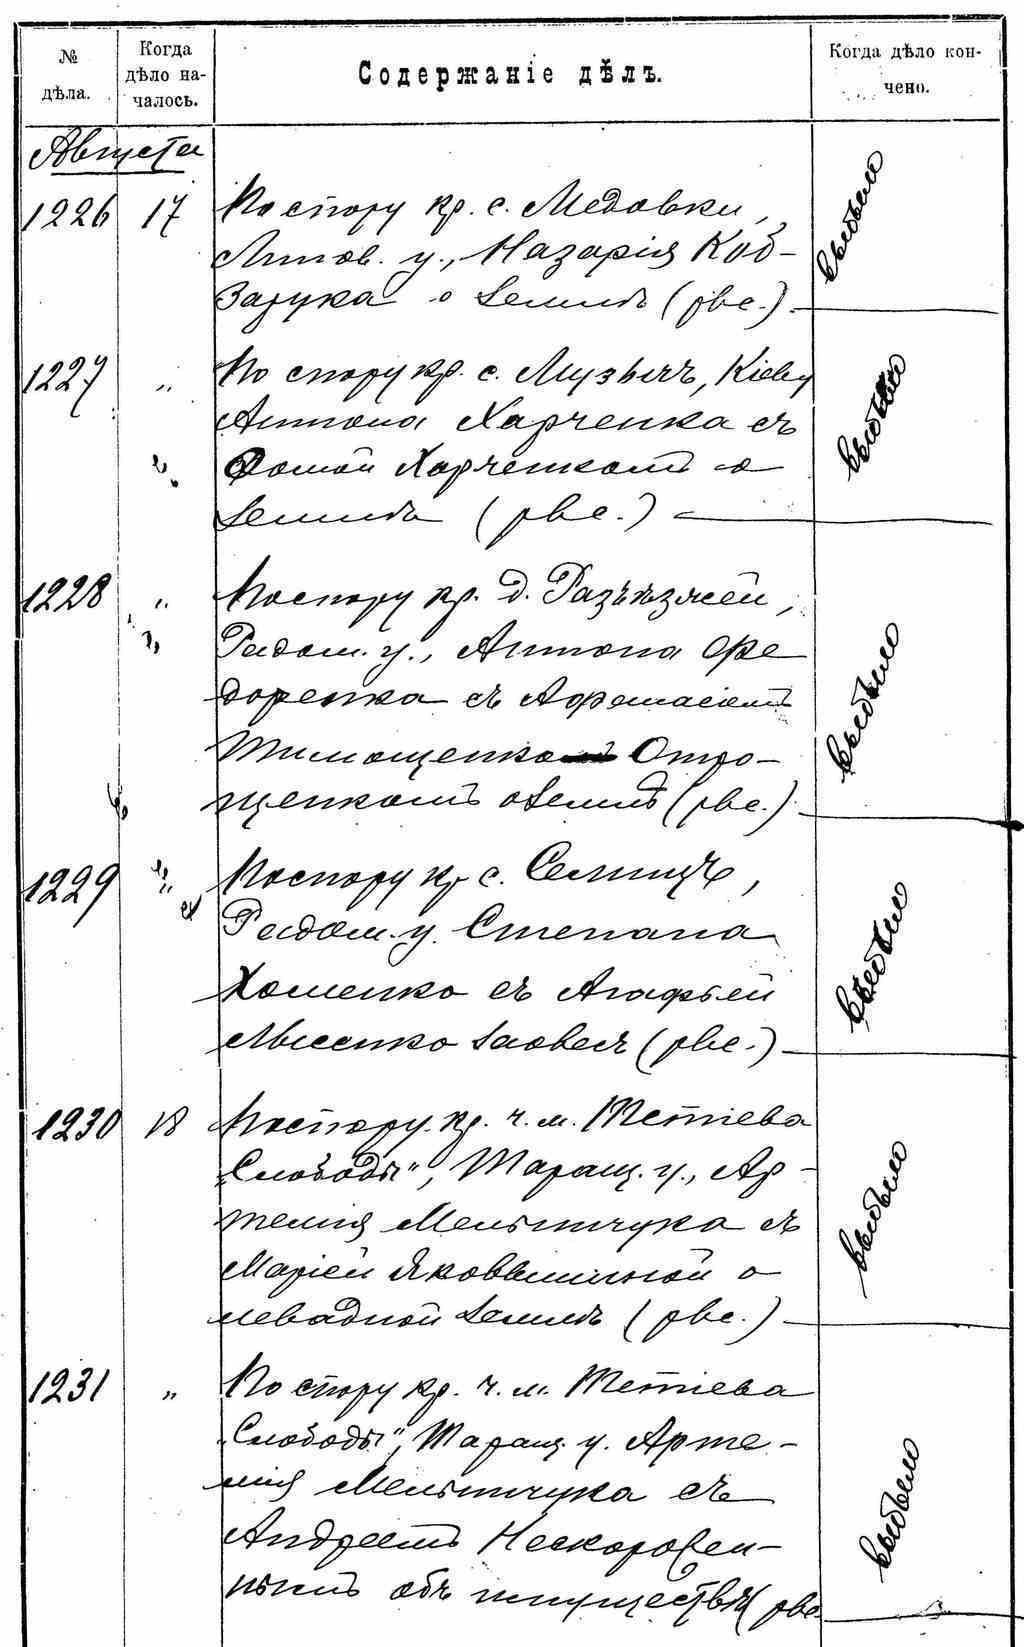 № дѣла.
Когда дѣло началось.
Содержаніе дѣлъ.
Когда дѣло кончено.
Августа
1226 17 По спору кр. с. Медовки, выбыло
Липов. у., Назарія Коб-
зарука о землѣ (рвс.)
1227 " По спору кр. с. Музычъ, Кіев у выбыло
Антона Харченка съ
Фомой Харченкомъ о
землѣ (рвс.)
1228 " По спору кр. д. Разъѣзжей, выбыло
Радом. у., Антона Фе
доренка съ Афанасіемъ
Тимощенко Отро-
щенкомъ о землѣ (рвс.)
1229 " По спору кр с. Селищъ, выбыло
Радом. у. Степана
Хоменко съ Агафьей
Лысенко (рвс.)
1230 18 По спору кр. ч. м. Тетіева выбыло
„Слободы", Таращ. у., Ар-
темія Мельничука съ
Маріей Яковишиной о
левадной землѣ (рвс.)
1231 " По спору кр. ч. м. Тетіева выбыло
„Слободы", Таращ. у. Арте-
мія Мельничука съ
Андреемъ Нескоромн-
нымъ объ имуществѣ (рвс